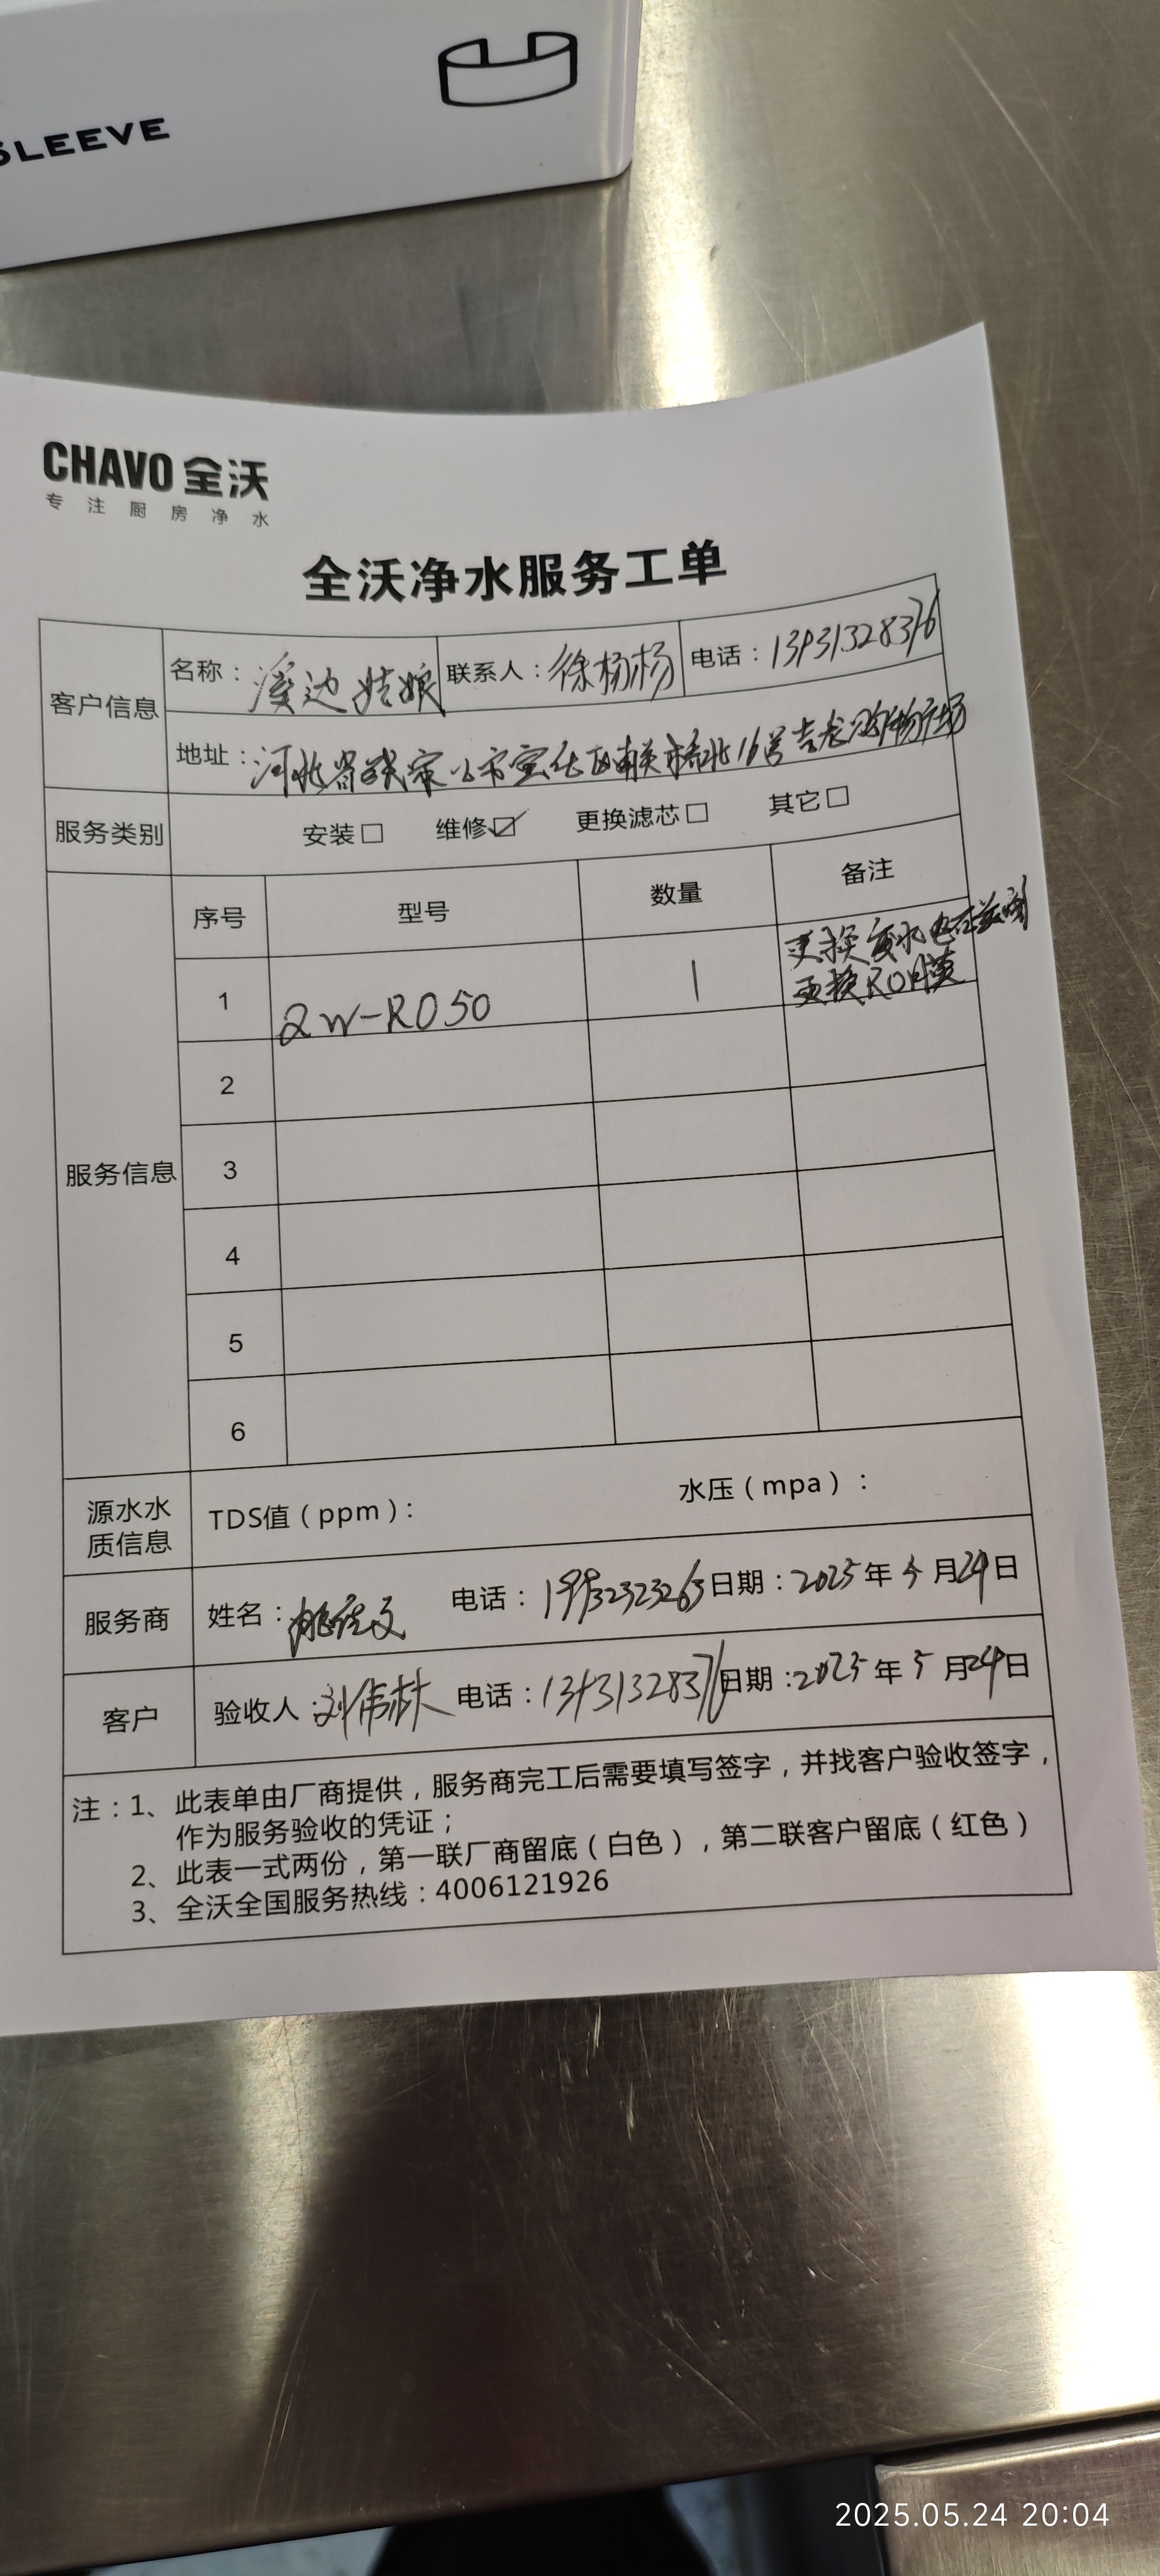 SLEEVE
CHAVO 全沃
专注厨房净水
全沃净水服务工单
客户信息 名称：溪边姑娘 联系人：徐杨杨 电话：
地址：河北省张家口市宣化区南关桥北16号吉龙购物广场
服务类别 安装□ 维修☑ 更换滤芯□ 其它□
服务信息 序号 型号 数量 备注
1 QW-RO50 1 更换废水电磁阀
更换RO膜
2
3
4
5
6
源水水质信息 TDS值（ppm）： 水压（mpa）：
服务商 姓名： 电话： 日期：2025年5月24日
客户 验收人：刘伟林 电话： 日期：2025年5月24日
注：1、此表单由厂商提供，服务商完工后需要填写签字，并找客户验收签字，
作为服务验收的凭证；
2、此表一式两份，第一联厂商留底（白色），第二联客户留底（红色）
3、全沃全国服务热线：4006121926
2025.05.24 20:04